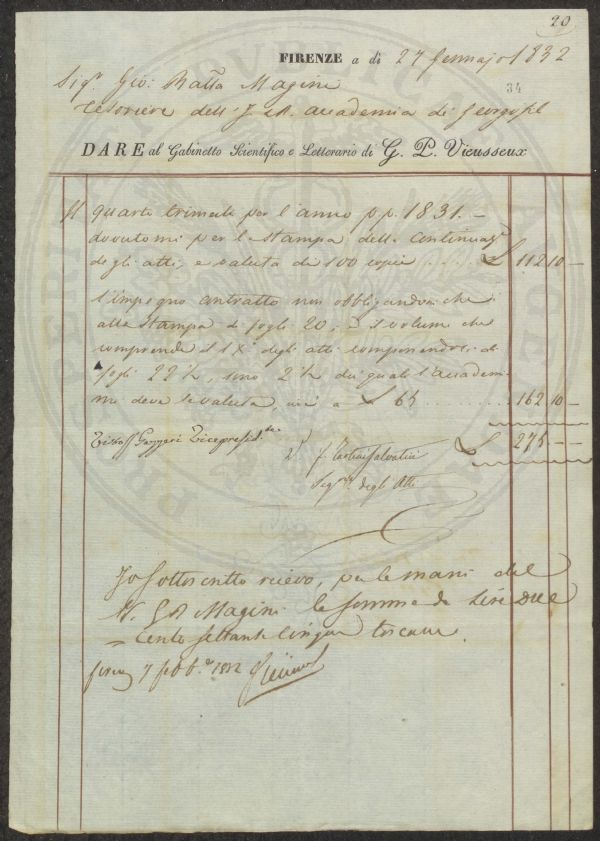 20
FIRENZE a di 27 Gennajo 1832
34
Sigr. Gio: Batta Magini
Tesoriere dell' I. e R. Accademia di Georgofil
DARE al Gabinetto Scientifico e Letterario di G. P. Vieusseux
Il quarto trimestre per l'anno p.p. 1831. –
dovutomi per la stampa della continuaz.
degli atti, e valuta di 100 copie . . . . £ 112 10 –
L'impegno contratto non obbligandomi che
alla stampa di fogli 20, e il volume che
comprende il IX degli atti componendosi di
fogli 22½, sono 2½ dei quali l'Accade-
mia deve la valuta, a £ 65 . . . . 162 10 –
Gazzeri Vicepresid.te
£ 275 – –
Segrio degli Atti
Io sottoscritto ricevo, per le mani del
S. G B Magini la somma di Lire Due
Cento settanta cinque toscane.
Firenze 7 febb.o 1832
PRVDENTIA